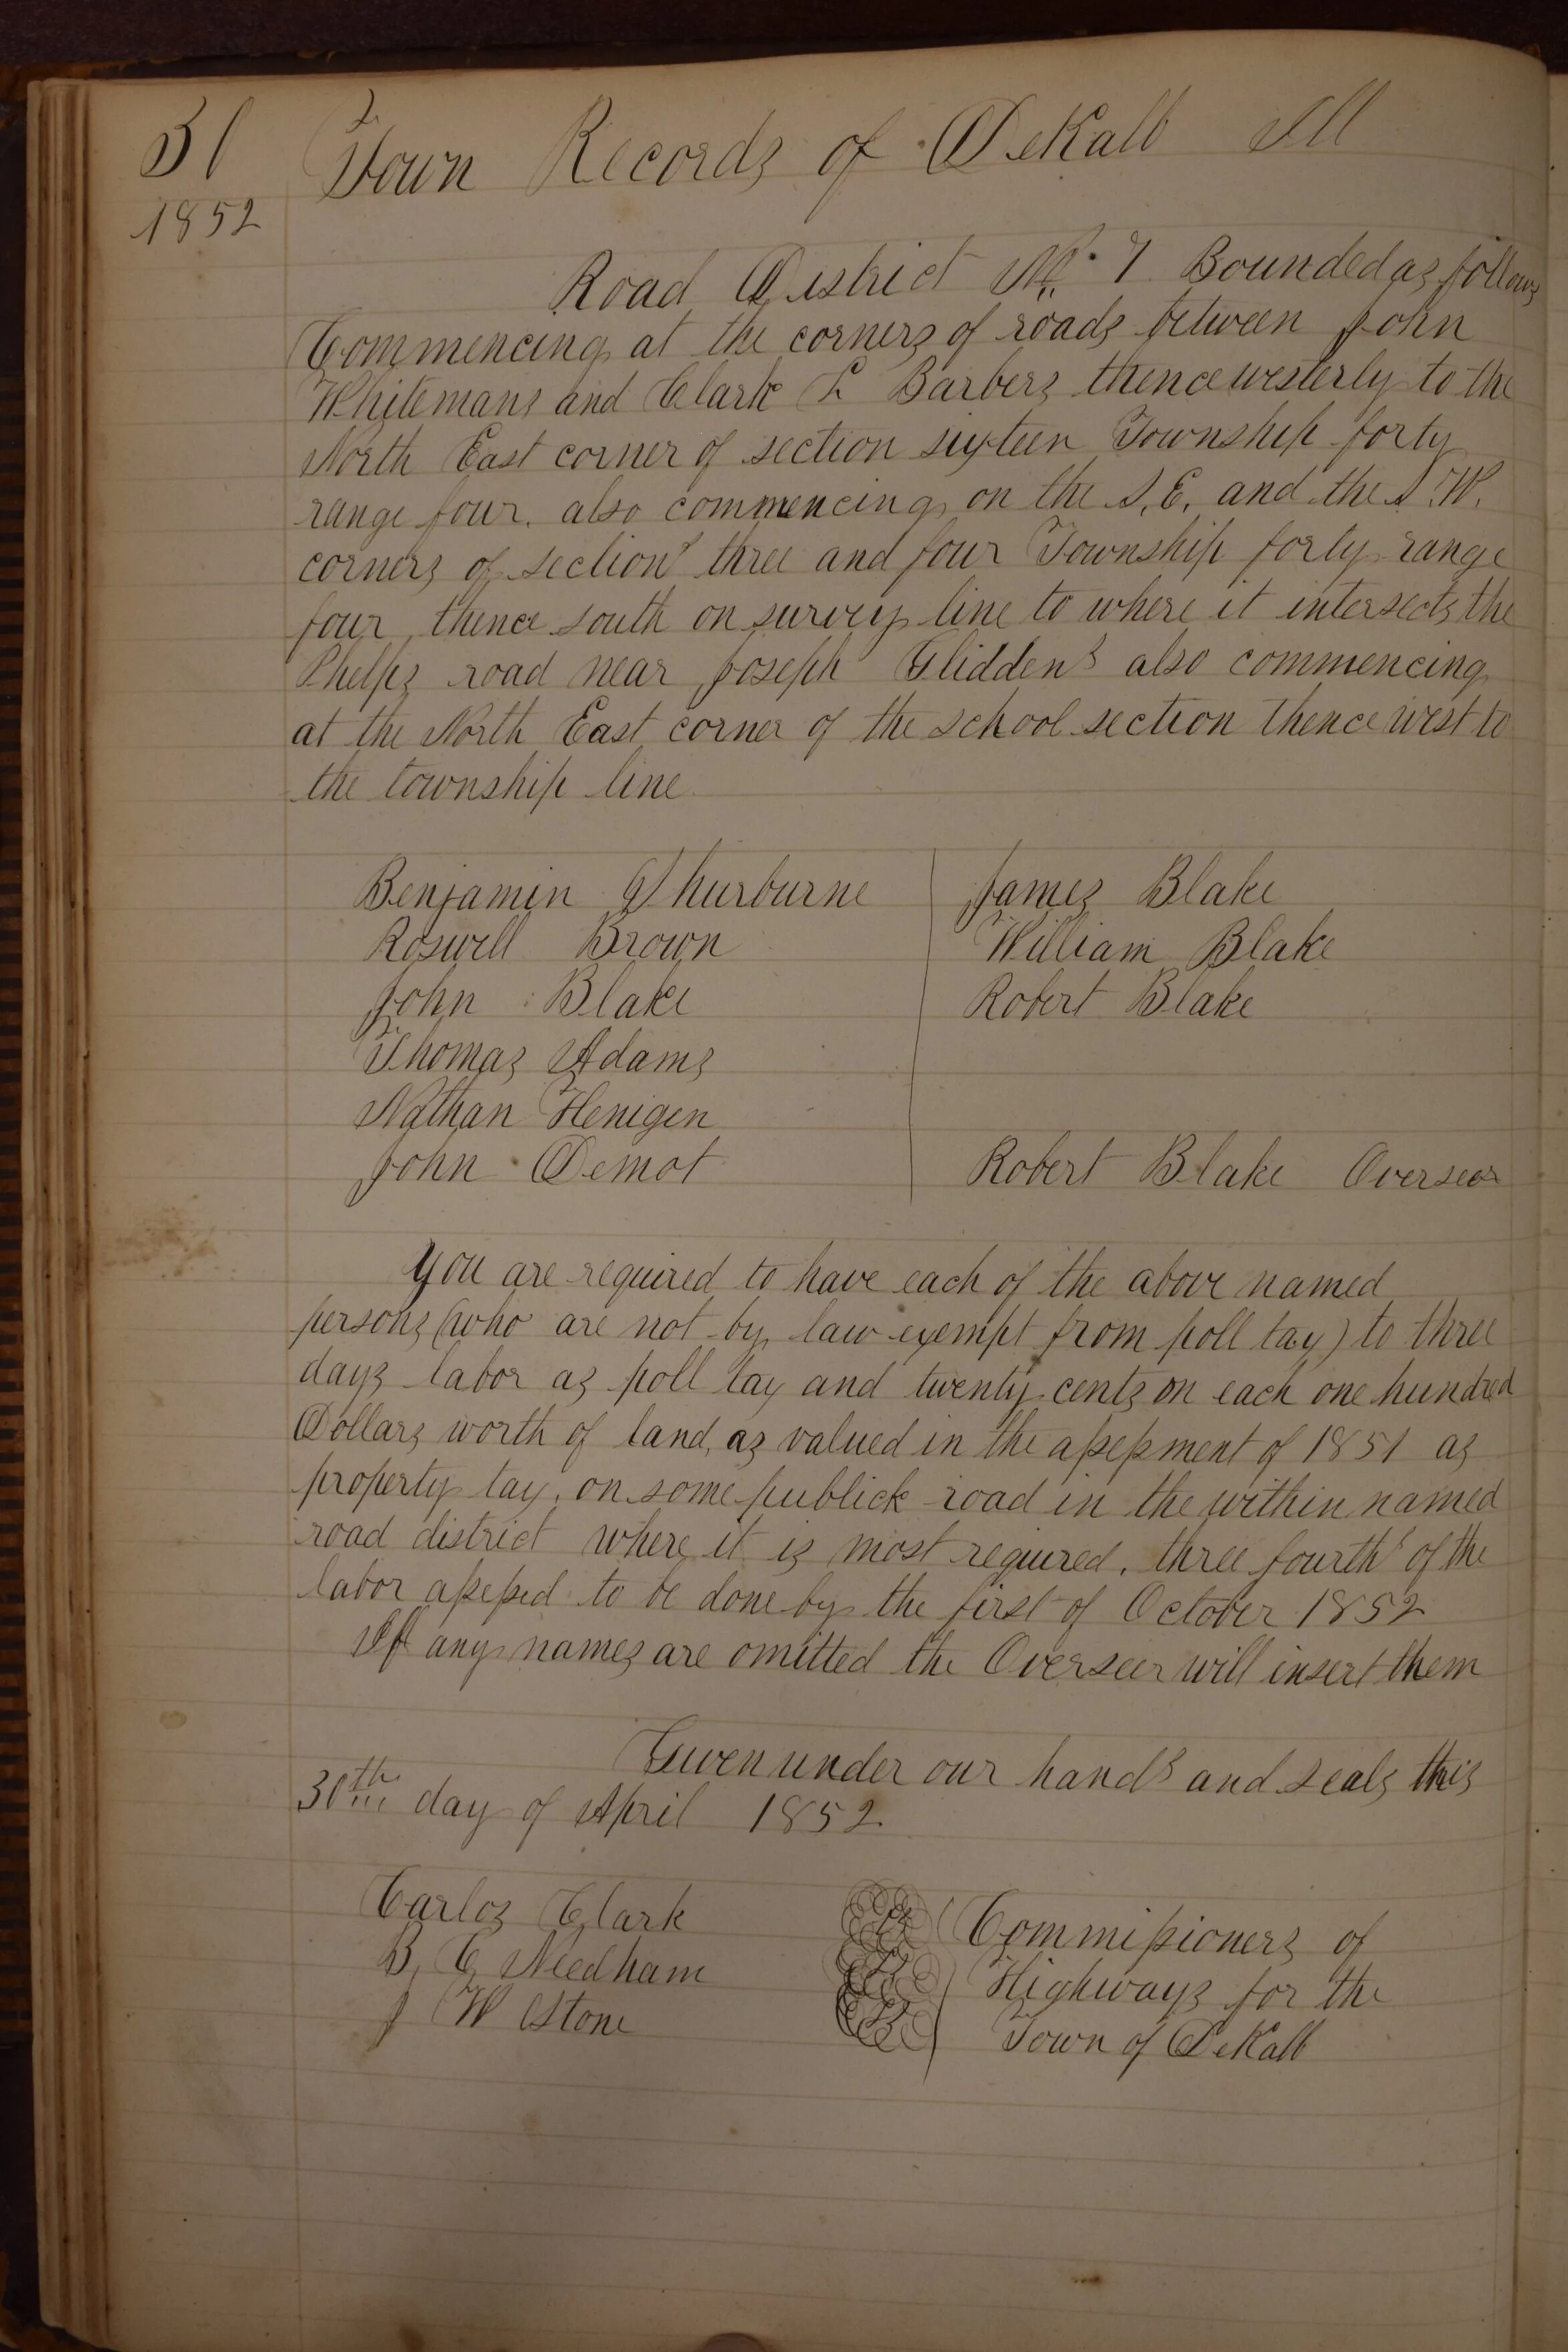 51 Town Records of DeKalb Ill
1852
Road District No. 7 Bounded as follows
Commencing at the corners of roads between John
Whitemans and Clark L Barbers thence westerly to the
North East corner of section sixteen Township forty
range four. also commencing on the S. E. and the S. W.
corners of sections three and four Township forty range
four, thence south on survey line to where it intersects the
Phelps road near Joseph Gliddens also commencing
at the North East corner of the school section thence west to
the township line
Benjamin Thurburne James Blake
Roswell Brown William Blake
John Blake Robert Blake
Thomas Adams
Nathan Henigen
John Demot Robert Blake Overseer
You are required to have each of the above named
persons (who are not by law exempt from poll tax) to three
days labor as poll tax and twenty cents on each one hundred
Dollars worth of land, as valued in the assessment of 1851 as
property tax, on some publick road in the within named
road district where it is most required, three fourths of the
labor assessed to be done by the first of October 1852
If any names are omitted the Overseer will insert them
Given under our hands and seals this
30th day of April 1852
Carlos Clark Commissioners of
B. C. Needham Highways for the
J W Stone Town of DeKalb